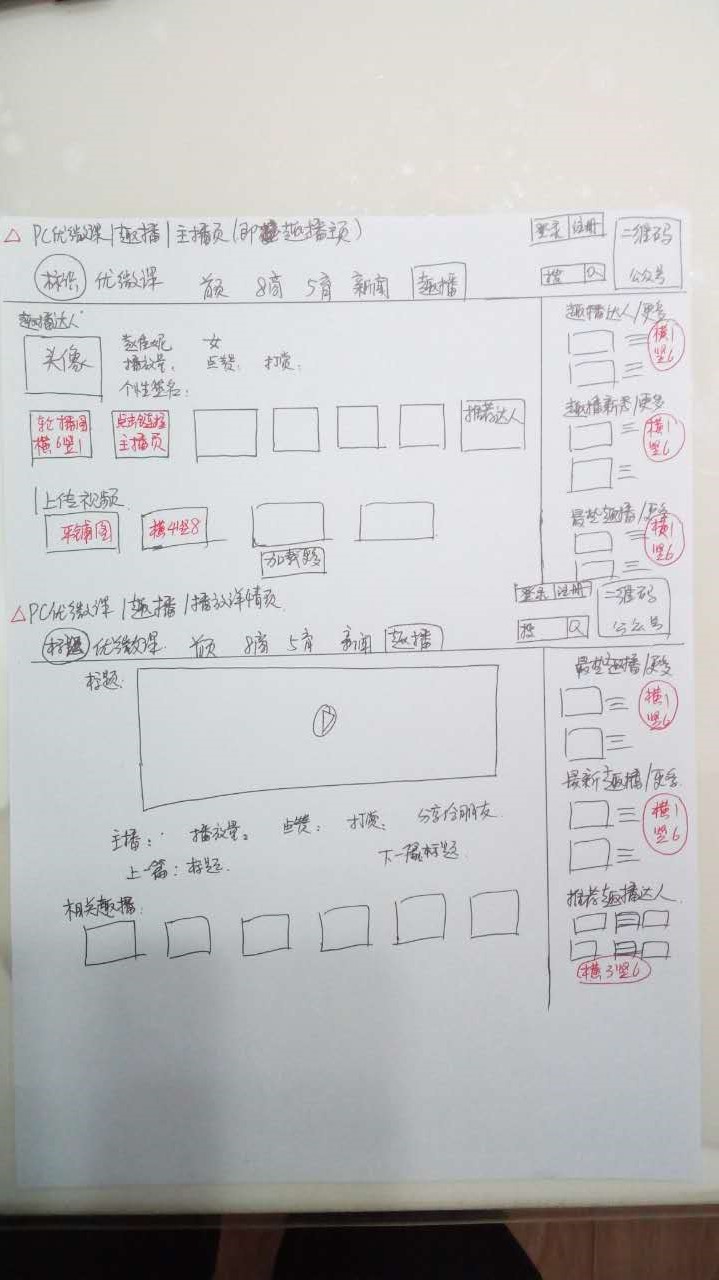 △ PC优微课|趣播|主播页(即趣播主页)
登录 注册
二维码
公众号
标识 优微课 首页 8商 5育 新闻 趣播
搜 Q
趣播达人:
头像
赵佳妮 女
播放量: 点赞: 打赏:
个性签名:
轮播图
横6竖1
点击链接
主播页
推荐达人
上传视频
平铺图
横4竖8
加载更多
趣播达人/更多
横1
竖6
趣播新秀/更多
横1
竖6
最热趣播/更多
横1
竖6
△ PC优微课|趣播|播放详情页
登录 注册
二维码
公众号
标题 优微课 首页 8商 5育 新闻 趣播
搜 Q
标题:
主播: 播放量: 点赞: 打赏: 分享给朋友
上一篇:标题 下一篇标题
相关趣播:
最热趣播/更多
横1
竖6
最新趣播/更多
横1
竖6
推荐趣播达人
横3竖6